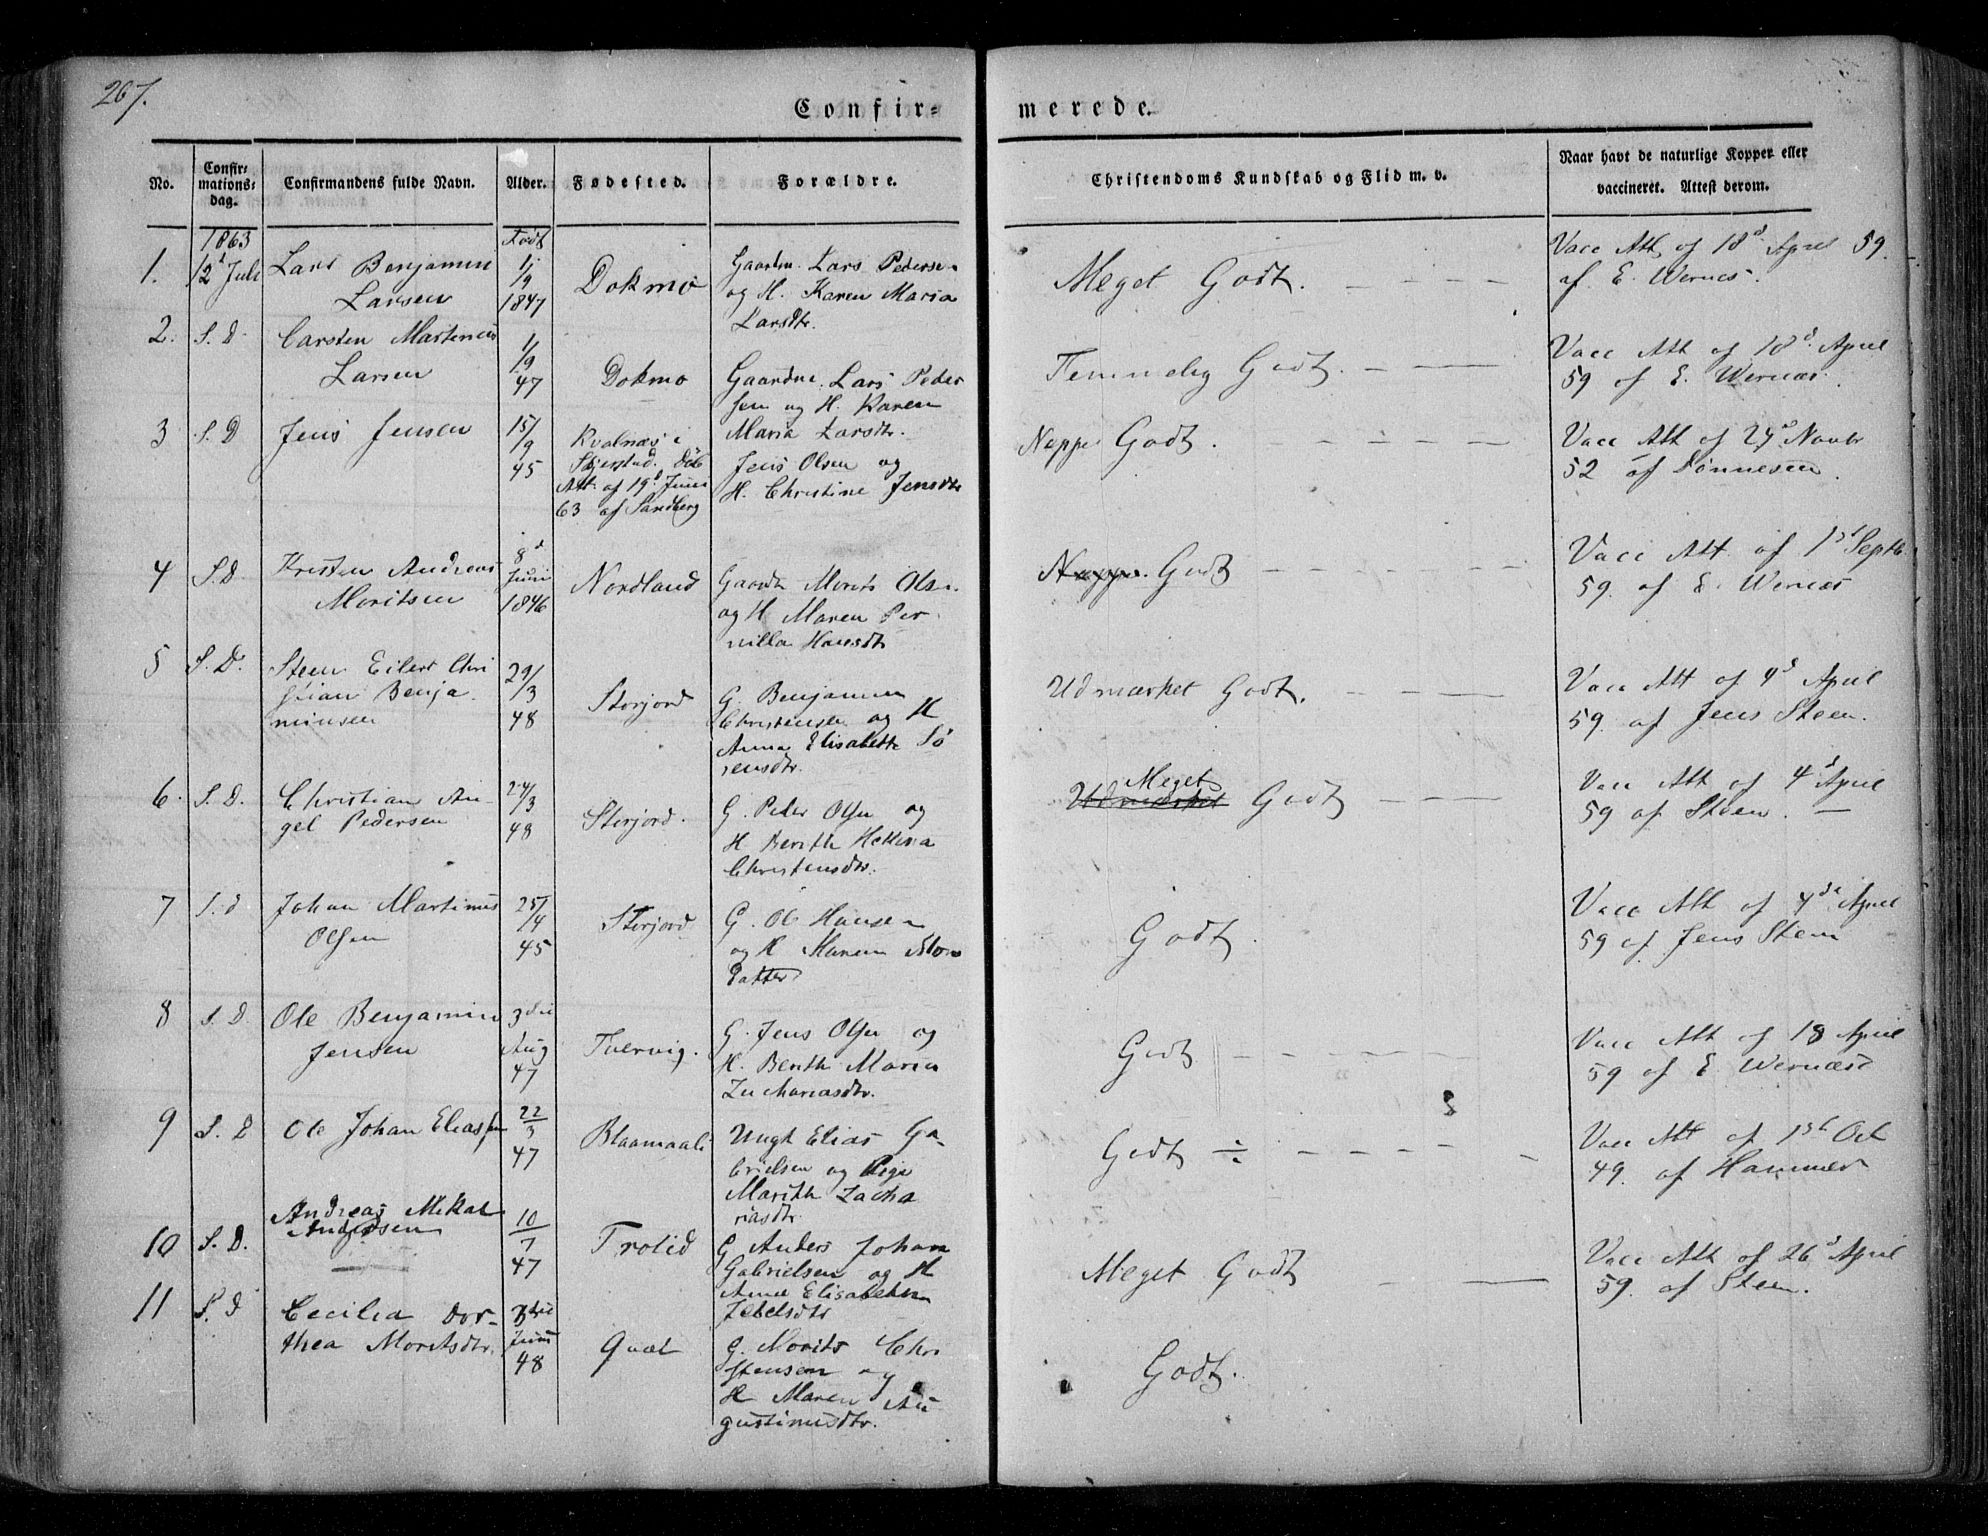 267.
Confir=
merede.
No.
Confir-
mations-
dag.
Confirmandens fulde Navn.
Alder.
Fødested.
Forældre.
Christendoms Kundskab og Flid m. v.
Naar havt de naturlige Kopper eller
vaccineret. Attest derom.
1863
Født
1.
12 Juli
Lars Benjamin
Larsen
1/
/9
1847
Dokmo
Gaardm. Lars Pedersen
og H. Karen Maria
Larsdtr.
Meget Godt.
Vacc Att of 18d April 59.
af E. Wernes.
2.
S. D.
Carsten Martenus
Larsen
1/
/9
47
Dokmo
Gaardm. Lars Peder
sen og H. Karen
Maria Larsdtr.
Temmelig Godt.
Vacc Att of 18d April
59 af E. Wernæs.
3
S. D
Jens Jensen
15/
/9
45
Kvalnæs i
Skjerstad. Døb
Att. af 19d Juni
63 af Sandberg
Jens Olsen og
H. Christine Jensdtr
Neppe Godt.
Vacc Att of 24d Novbr
52 af Tønnesen.
4
S. D
Kristen Andreas
Moritsen
8d
Juni
1846
Nordland
Gaardm Morits Olsen
og H Maren Per
nilla Hansdtr
Neppe. Godt
Vacc Att. of 1st Septb.
59. af E. Wernæs
5
S. D.
Steen Eilert Chri
stian Benja-
minsen
29/
/3
48
Storjord
G. Benjamin
Christensen og H
Anna Elisabeth Sö
rensdtr.
Udmærket Godt.
Vacc Att of 4d April
59. af Jens Steen.
6.
S. D.
Christian An-
gel Pedersen
24/
/3
48
Storjord.
G. Peder Olsen og
H Berith Hettina
Christensdtr.
Meget
Udmærket Godt
Vacc Att of 4d April
59 af Steen.
7
S. d
Johan Martinus
Olsen
25/
/4
45
Storjord
G. Ole Hansen
og H Maren Mons
Datter
Godt.
Vacc Att of 4de April
59 af Jens Steen
8
S. D
Ole Benjamin
Jensen
3die
Aug
47
Tvervig.
G. Jens Olsen og
H. Berith Maria
Zachariasdtr.
Godt
Vacc Att of 18 April
59 af E Wernæs
9
S. D
Ole Johan Eliassen
22
/3
47
Blaamaali
Ungk Elias Ga-
brielsen og Pige
Marith Zacha
riasdtr.
Godt
Vacc Att of 1st Oct
49. af Hammer
10
S. D.
Andreas Mikal
Andersen
10
/7
47
Trolid
G Anders Johan
Gabrielsen og H
Anne Elisabeth
Zebelsdtr
Meget Godt
Vacc Att of 26d April
59. af Steen.
11
S. D
Cecilia Dor-
thea Moritsdtr.
3die
Juni
48
Qval
G. Morits Chri
stensen og
H Maren Au-
gustinusdtr.
Godt.